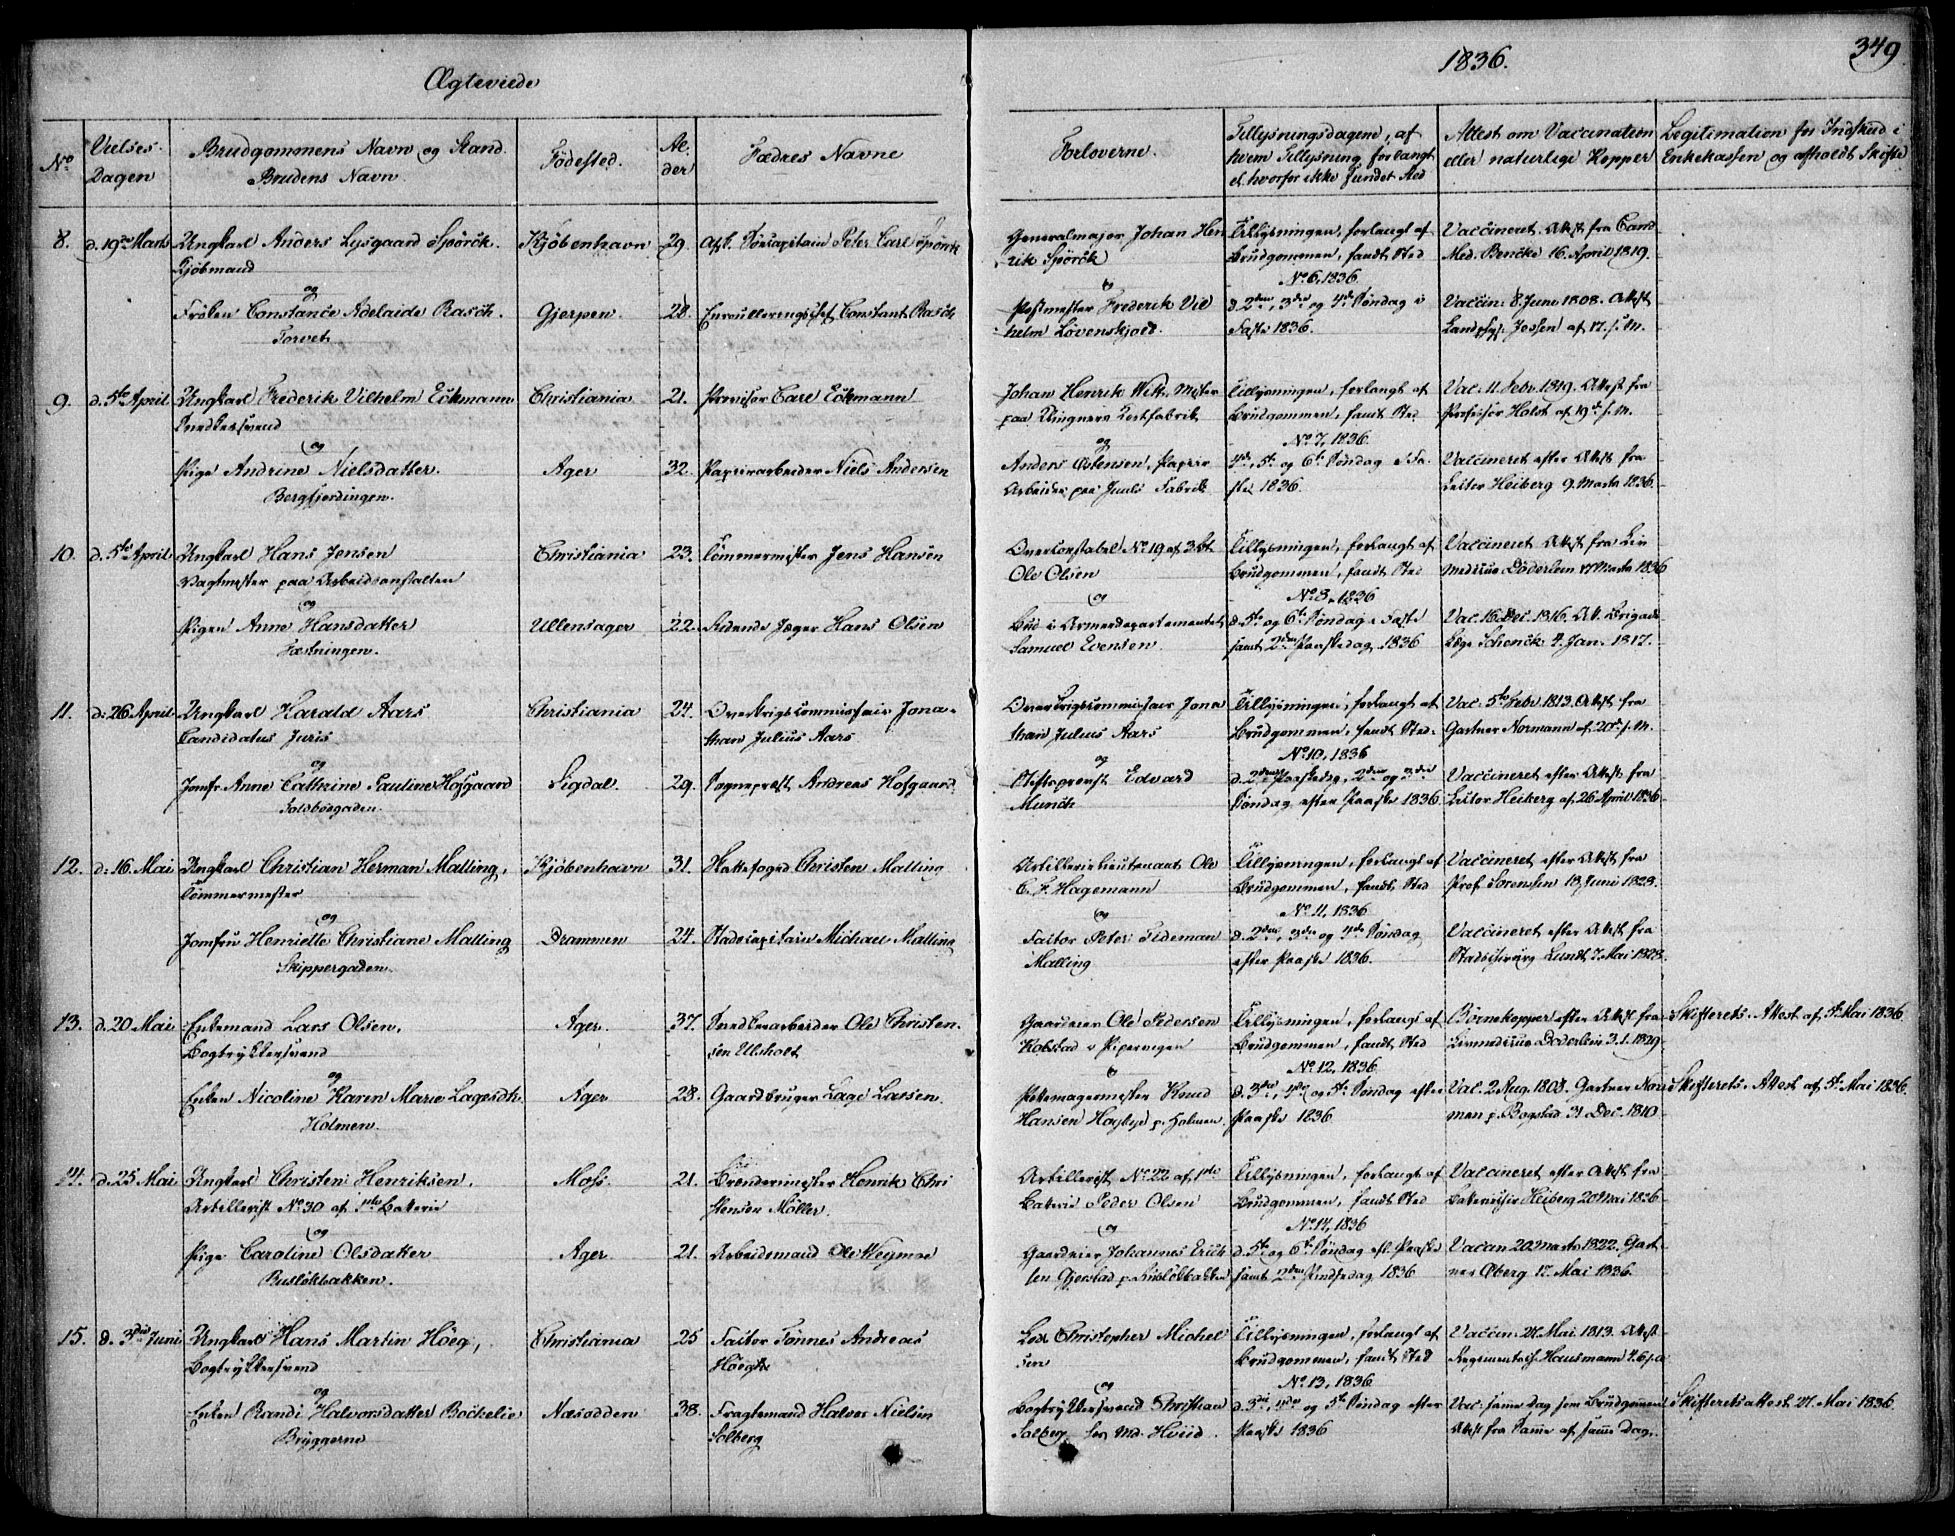 Ægteviede
1836.
349
No
Vielses-
Dagen
Brudgommens Navn og Stand.
Brudens Navn.
Fødested.
Al-
der
Fædres Navne
Forloverne.
Tillysningsdagene, af
hvem Tillysning forlangt
el. hvorfor ikke fundet Sted
Attest om Vaccination
eller naturlige Kopper
Legitimation for Indskud i
Enkekassen og afholdt Skifte
8. d. 19de Marts Ungkarl Anders Lysgaard Spörck. Kjöbenhavn 29. Peter Carl Spörck
Kjöbmand
og
Fröken Constance Adelaide Rasch. Gjerpen. 28. Enroulleringschef Constant Rasch
Torvet
Generalmajor Johan Hen
rik Spörck
Postmester Frederik Vil
helm Lövenskjold.
Tillysningen, forlangt af
Brudgommen, fandt Sted
No 6, 1836
d. 2den, 3die og 4de Söndag i
Faste 1836.
Vaccineret. Attest fra Cand
Med. Bencke 16. April 1819.
Vaccin: 8. Juni 1808. Attest
Landphys. Jessen af 17. s. M.
9. d. 5te April Ungkarl Frederik Vilhelm Eckmann Christiania 21. Provisor Carl Eckmann
Snedkersvend
og
Pige Andrine Nielsdatter. Ager 32. Papirarbeider Niels Andersen
Bergfjerdingen.
Johan Henrik Witt, Mester
paa Ringners Fabrik
og
Anders Ostensen, Papir
Arbeider paa Juuls Fabrik
Tillysningen, forlangt af
Brudgommen, fandt Sted
No 7, 1836
4de, 5te og 6te Söndag i Fa-
ste 1836.
Vac. 11. Febr. 1819. Attest fra
Professor Holst af 19de s. M.
Vaccineret efter Attest fra
Lector Heiberg 9. Marts 1836.
10. d. 5te April Ungkarl Hans Jensen Christiania 23. Tömmermester Jens Hansen
Vagtmester paa Arbeidsanstalten
og
Pigen Anne Hansdatter Ullensager 22. Ridende Jæger Hans Olsen
Fæstningen.
Overconstabel No 19 af 3. Bt.
Ole Olsen
og
Bud i Armeedepartementet
Samuel Evensen
Tillysningen, forlangt af
Brudgommen, fandt Sted
No 8, 1836
d. 5te og 6te Söndag i Faste
samt 2den Paaskedag 1836
Vaccineret Attest fra Liv
medicus Döderlein 17 Marts 1836
Vac. 16. Dec. 1816. Att. Brigade
Læge Schenck 4. Jan. 1817.
11. d. 26 April Ungkarl Harald Aars Christiania 24. Overkrigscommissair Jona-
Candidatus Juris than Julius Aars
og
Jomfr. Anne Cathrine Pauline Hofgaard Sigdal. 29. Sogneprest Andreas Hofgaard
Toldbodgaden.
Overkrigscommissair Jona
than Julius Aars
og
Stiftsprovst Edvard
Munch
Tillysningen, forlangt af
Brudgommen, fandt Sted.
No 10, 1836
d. 2den Paaskedag, 2den og 3die
Söndag efter Paaske 1836.
Vac. 5te Febr. 1813. Attest fra
Gartner Normann af 20de s. M.
Vaccineret efter Attest fra
Lector Heiberg af 26 April 1836
12. d. 16. Mai Ungkarl Christian Herman Malling, Kjöbenhavn 31. Slottsfoged Christen Malling
Tömmermester
og
Jomfru Henriette Christiane Malling Drammen 24. Stadscapitain Michael Malling
Skippergaden.
Artillerielieutenant Ole
C. F. Hagemann
og
Factor Peter Tideman
Malling
Tillysningen, forlangt af
Brudgommen, fandt Sted
No 11, 1836
d. 2den, 3die og 4de Söndag
efter Paaske 1836.
Vaccineret efter Attest fra
Prof. Sörenssen 18. Juni 1828.
Vaccineret efter Attest fra
Stadschirurg Lundt 7. Mai 1828.
13. d. 20 Mai Enkemand Lars Olsen, Ager. 37. Snedkerarbeider Ole Christen-
Bogtrykkersvend sen Ulsholt
og
Enken Nicoline Karen Marie Lagesdtr. Ager 28. Gaardbruger Lage Larsen
Holmen.
Gaardeier Ole Pedersen
Kolstad i Pipervigen
Pottemagermester Knud
Hansen Hagbye p. Holmen.
Tillysningen, forlangt af
Brudgommen, fandt Sted
No 12, 1836
d. 3die, 4de og 5te Söndag efter
Paaske 1836
Börnekopper efter Attest fra
Livmedicus Döderlein 3. 1. 1829.
Vac. 2 Aug. 1808. Gartner Nor
man p. Bogstad 31 Dec. 1810
Skifterets. Attest af 5te Mai 1836
Skifterets. Attest af 5te Mai 1836.
14. d. 25 Mai Ungkarl Christen Henriksen, Moss. 21. Bröndermester Henrik Chri
Artillerist No 30 af 1ste Batterie stensen Möller.
og
Pige Caroline Olsdatter Ager 21. Arbeidsmand Ole Wegmoe
Ruslökbakken.
Artillerist No 22 af 1ste
Batterie Peder Olsen
og
Gaardeier Johannes Erich
sen Gjerstad p. Ruslökbakken
Tillysningen, forlangt af
Brudgommen, fandt Sted
No 14, 1836
d. 5te og 6te Söndag eft. Paaske
samt 2den Pindsedag 1836
Vaccineret efter Attest fra
Heiberg 20 Mai 1836
Vaccin 20 Marts 1822. Gart
ner Öberg 17. Mai 1836.
15. d. 3die Juni Ungkarl Hans Martin Höeg, Christiania 25 Factor Tönnes Andreas
Bogtrykkersvend Höegh
og
Enken Randi Halvorsdatter Bockelie Næsodden 38. Fragtemand Halvor Nielsen
Bryggerne Solberg
Christopher Michel
sen
og
Bogtrykkersvend Christian
Solberg hos Md. Hviid.
Tillysningen, forlangt af
Brudgommen, fandt Sted
No 13, 1836
d. 3die, 4de og 5te Söndag efter
Paaske 1836
Vaccin. 21. Mai 1813. Attest
Regimentschir. Hausmann
Vac. samme dag som Brudgommen
Attest fra Samme af samme Dag.
Skifteretsattest 27. Mai 1836